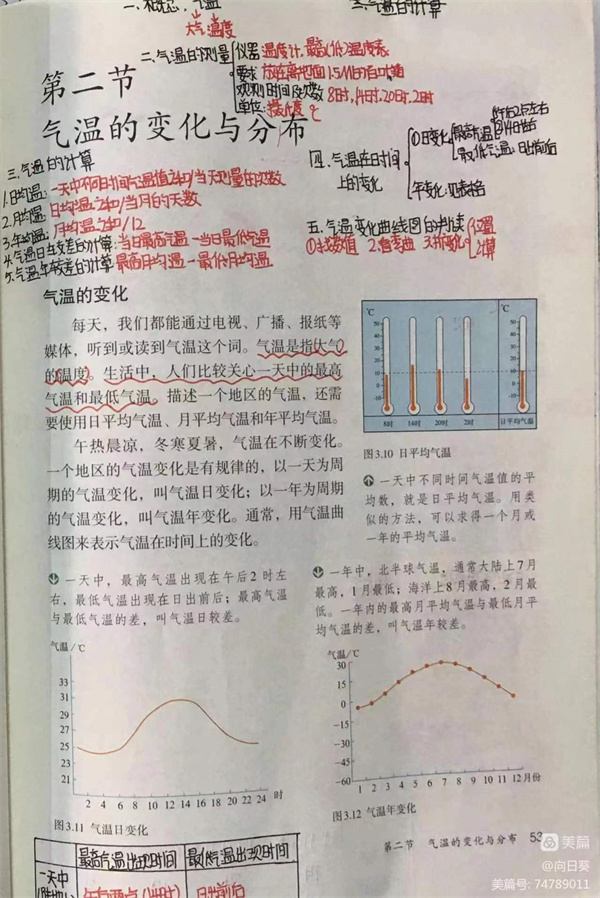 一、概念：气温
大气温度
三、气温的计算
二、气温的观测
仪器 温度计、最高(低)温度表
要求 放在离地面1.5M的百叶箱
观测时间及次数 8时,14时,20时,2时
单位: 摄氏度 ℃
第二节
气温的变化与分布
三、气温的计算
1.日均温: 一天中不同时间气温值之和/当天测量的次数
2.月均温: 日均温之和/当月的天数
3.年均温: 月均温之和/12
4.气温日较差的计算: 当日最高气温-当日最低气温
5.气温年较差的计算 最高月均温-最低月均温
四、气温在时间
上的变化
①日变化
最高气温
午后2点左右
14时左右
最低气温: 日出前后
年变化: 见表格
五、气温变化曲线图的判读
①读数值 2.看弯曲 3.析变化
位置
计算
气温的变化
每天，我们都能通过电视、广播、报纸等
媒体，听到或读到气温这个词。气温是指大气
的温度。生活中，人们比较关心一天中的最高
气温和最低气温。描述一个地区的气温，还需
要使用日平均气温、月平均气温和年平均气温。
午热晨凉，冬寒夏暑，气温在不断变化。
一个地区的气温变化是有规律的，以一天为周
期的气温变化，叫气温日变化；以一年为周期
的气温变化，叫气温年变化。通常，用气温曲
线图来表示气温在时间上的变化。
℃ ℃
50 50
40 40
30 30
20 20
10 10
0 0
-10 -10
8时 14时 20时 2时 日平均气温
图3.10 日平均气温
一天中不同时间气温值的平
均数，就是日平均气温。用类
似的方法，可以求得一个月或
一年的平均气温。
一天中，最高气温出现在午后2时左
右，最低气温出现在日出前后；最高气温
与最低气温的差，叫气温日较差。
一年中，北半球气温，通常大陆上7月
最高，1月最低；海洋上8月最高，2月最
低。一年内的最高月平均气温与最低月平
均气温的差，叫气温年较差。
气温/℃
33
31
29
27
25
23
21
2 4 6 8 10 12 14 16 18 20 22 24 时
图3.11 气温日变化
气温/℃
30
15
0
-15
-30
-45
-60
1 2 3 4 5 6 7 8 9 10 11 12月份
图3.12 气温年变化
第二节 气温的变化与分布 53
最高气温出现时间 最低气温出现时间
一天中
(陆地)
午后两点(14时) 日出前后
美篇
@向日葵
美篇号: 74789011